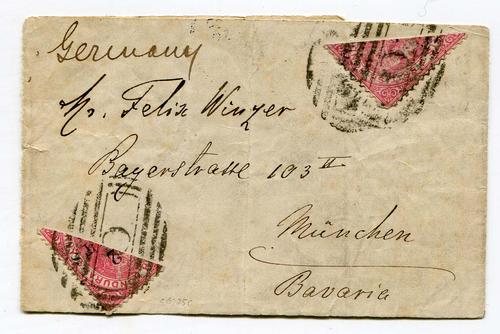 Germany
Mr. Felix Winzer
Bayerstrasse 103 II
München
Bavaria